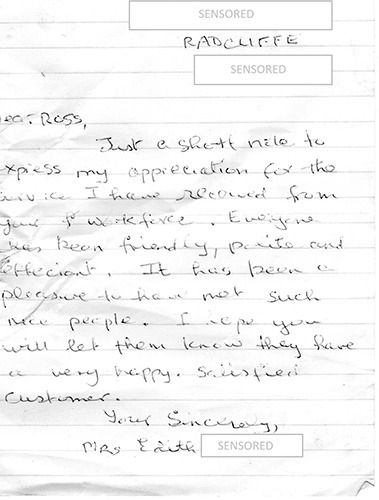 SENSORED
RADCLIFFE
SENSORED
ear Ross,
Just a short note to
xpress my appreciation for the
service I have received from
your workforce. Everyone
has been friendly, polite and
effecient. It has been a
pleasure to have met such
nice people. I hope you
will let them know they have
a very happy. Satisfied
Customer.
Your Sincerely,
Mrs Edith SENSORED